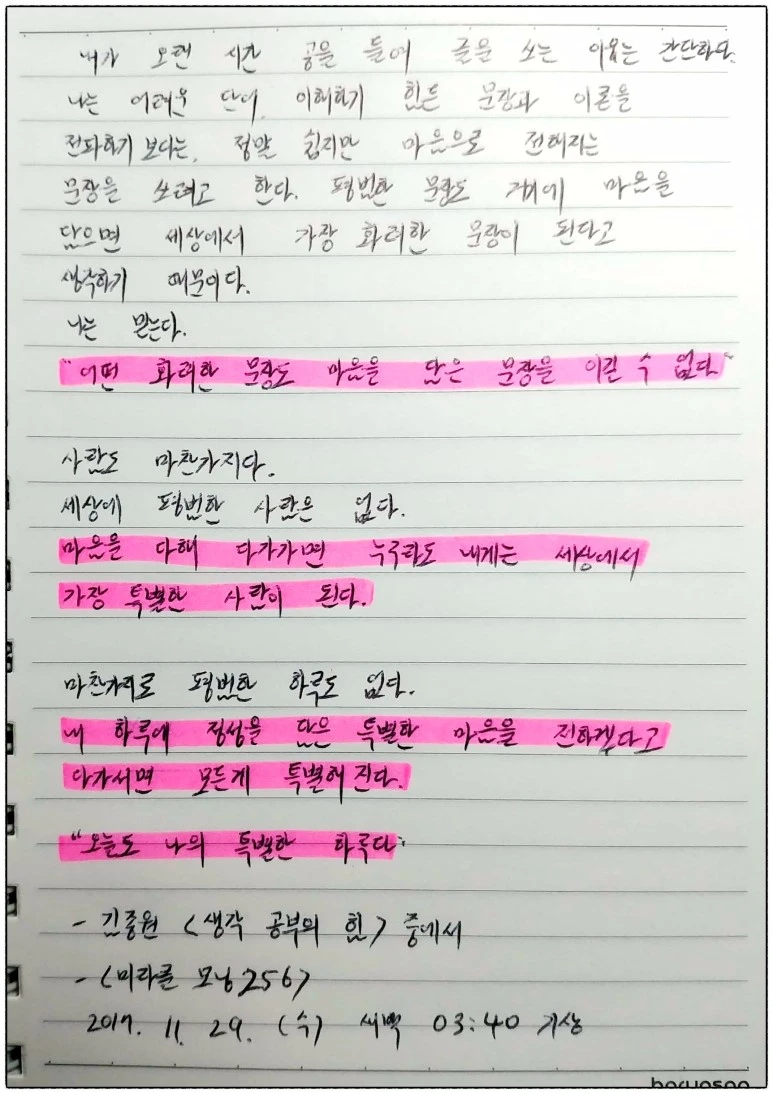 내가 오랜 시간 공을 들여 글을 쓰는 이유는 간단하다.
나는 어려운 단어, 이해하기 힘든 문장과 이론을
전파하기 보다는, 정말 쉽지만 마음으로 전해지는
문장을 쓰려고 한다. 평범한 문장도 거기에 마음을
담으면 세상에서 가장 화려한 문장이 된다고
생각하기 때문이다.
나는 믿는다.
"어떤 화려한 문장도 마음을 담은 문장을 이길 수 없다"
사람도 마찬가지다.
세상에 평범한 사람은 없다.
마음을 다해 다가가면 누구라도 내게는 세상에서
가장 특별한 사람이 된다.
마찬가지로 평범한 하루도 없다.
내 하루에 정성을 담은 특별한 마음을 전하겠다고
다가서면 모든게 특별해 진다.
"오늘도 나의 특별한 하루다"
- 김종원 <생각 공부의 힘> 중에서
- <미라클 모닝 256>
2017. 11. 29. (수) 새벽 03:40 기상